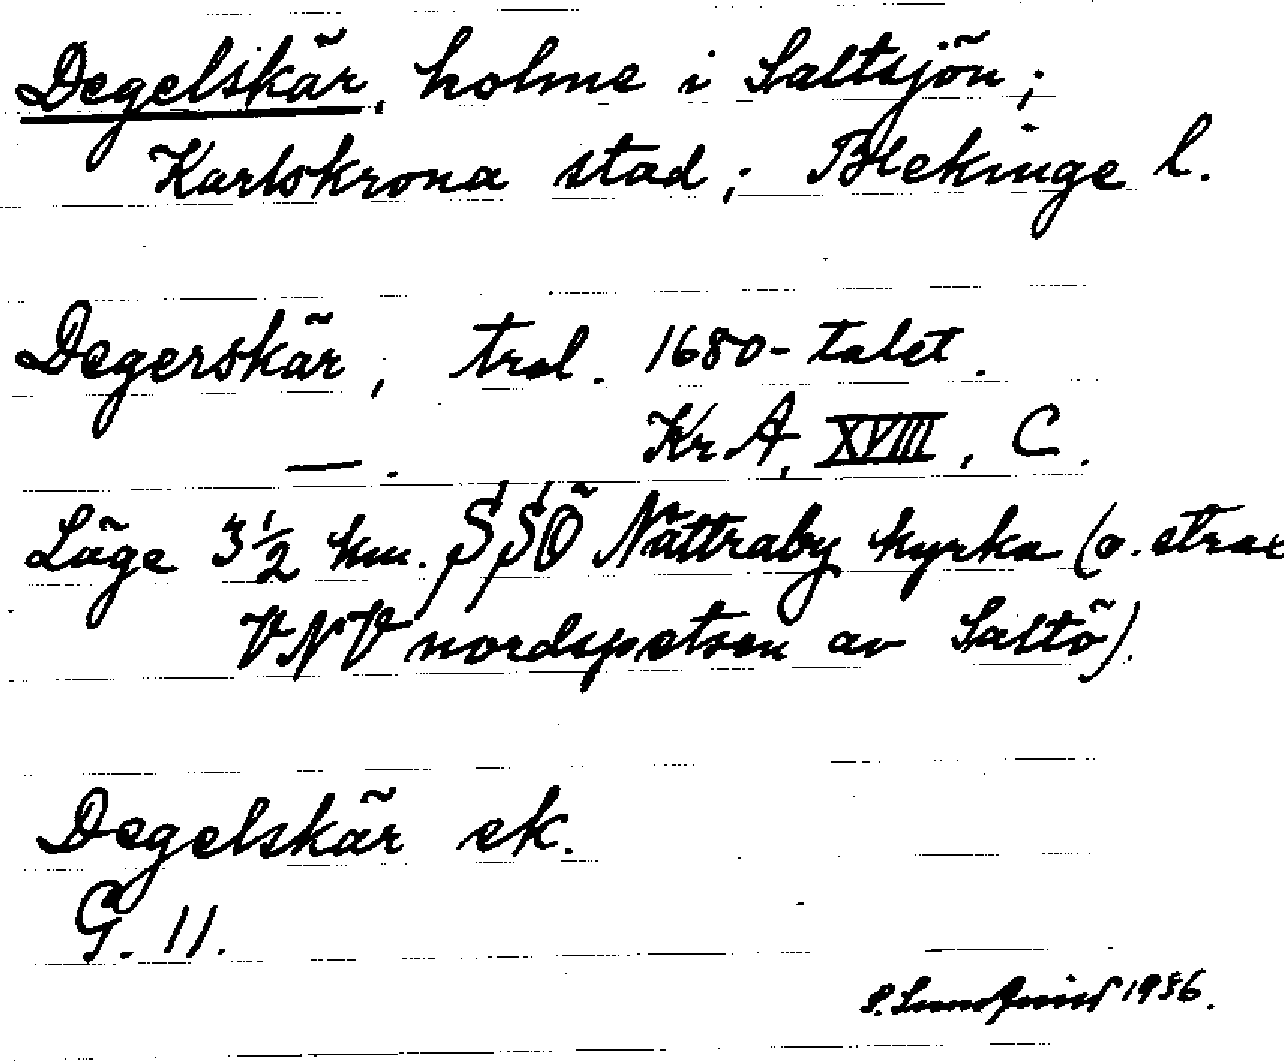 Degelskär, holme i Saltsjön;
Karlskrona stad; Blekinge l.
Degerskär, trol. 1680-talet.
—. KrA, XVIII, C.
Läge 3½ km. SSÖ Nättraby kyrka (o. strax
VNV nordspetsen av Saltö).
Degelskär ek.
G. 11.
S. Lundquist 1936.